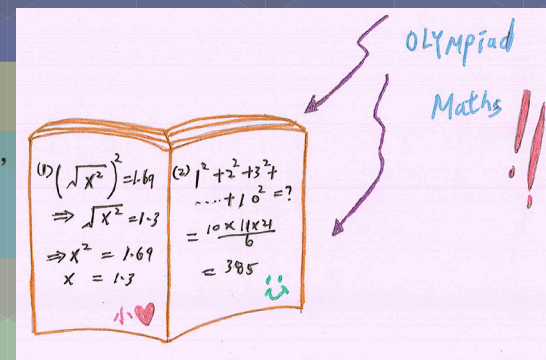 OLYMpiad
Maths !!
,
(1) (√x²)² = 1.69
⇒ √x² = 1.3
⇒ x² = 1.69
x = 1.3
小♥
(2) 1² + 2² + 3² +
.....+ 10² = ?
= 10 × 11 × 21 / 6
= 385